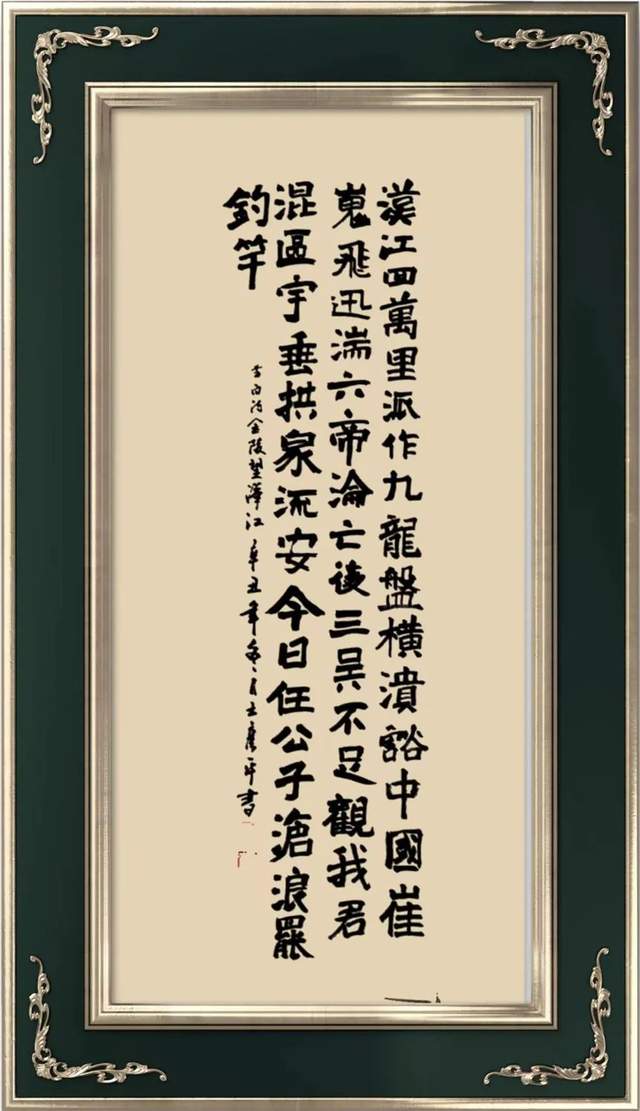 漢江囬萬里派作九龍盤橫潰豁中國崔
嵬飛迅湍六帝淪亡後三吳不足觀我君
混區宇垂拱衆流安今日任公子滄浪罷
釣竿
李白詩金陵望漢江 辛丑年冬月 平書